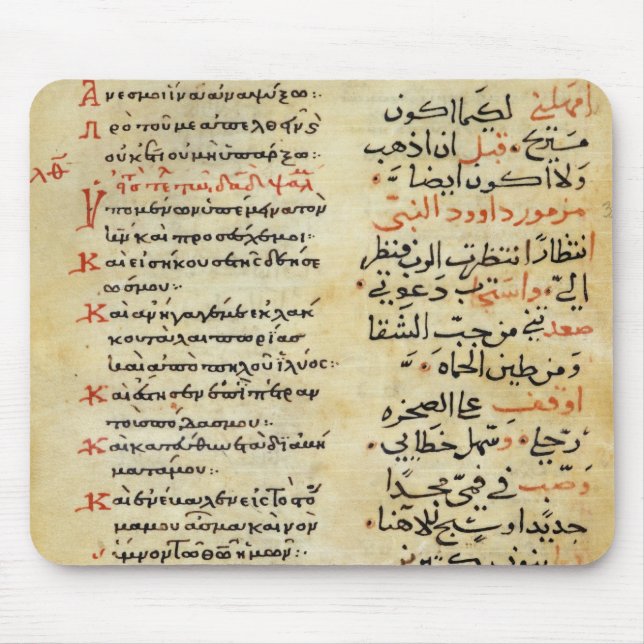 Ἄνες μοι ἵνα ἀναψύξω:·
Πρὸ τοῦ με ἀπελθεῖν
οὐκέτι οὐ μὴ ὑπάρξω:·
λθ
Ὑπομένων ὑπέμεινα τὸν
κν καὶ προσέσχε μοι:·
Καὶ εἰσήκουσε τῆς δεήσε
ώς μου:·
Καὶ ἀνήγαγέ με ἐκ λάκ
κου ταλαιπωρίας
καὶ ἀπὸ πηλοῦ ἰλύος:·
Καὶ ἔστησεν ἐπὶ πέτραν
πόδας μου:·
Καὶ κατεύθυνε τὰ διαβή
ματά μου:·
Καὶ ἐνέβαλεν εἰς τὸ στό
μα μου ᾆσμα καινὸν
ὕμνον τῷ θῷ ἡμῶν:·
امهلني لكيما اكون
مستريح قبل ان اذهب
ولا اكون ايضا
مزمور داوود النبي
انتظارًا انتظرت الرب فنظر
اليّ واستجاب دعوتي
صعدني من جبّ الشقا
ومن طين الحماه
اوقف على الصخره
رجلي وسهل خطايي
وصب في فمي مجدًا
جديدًا وسبح لالاهنا